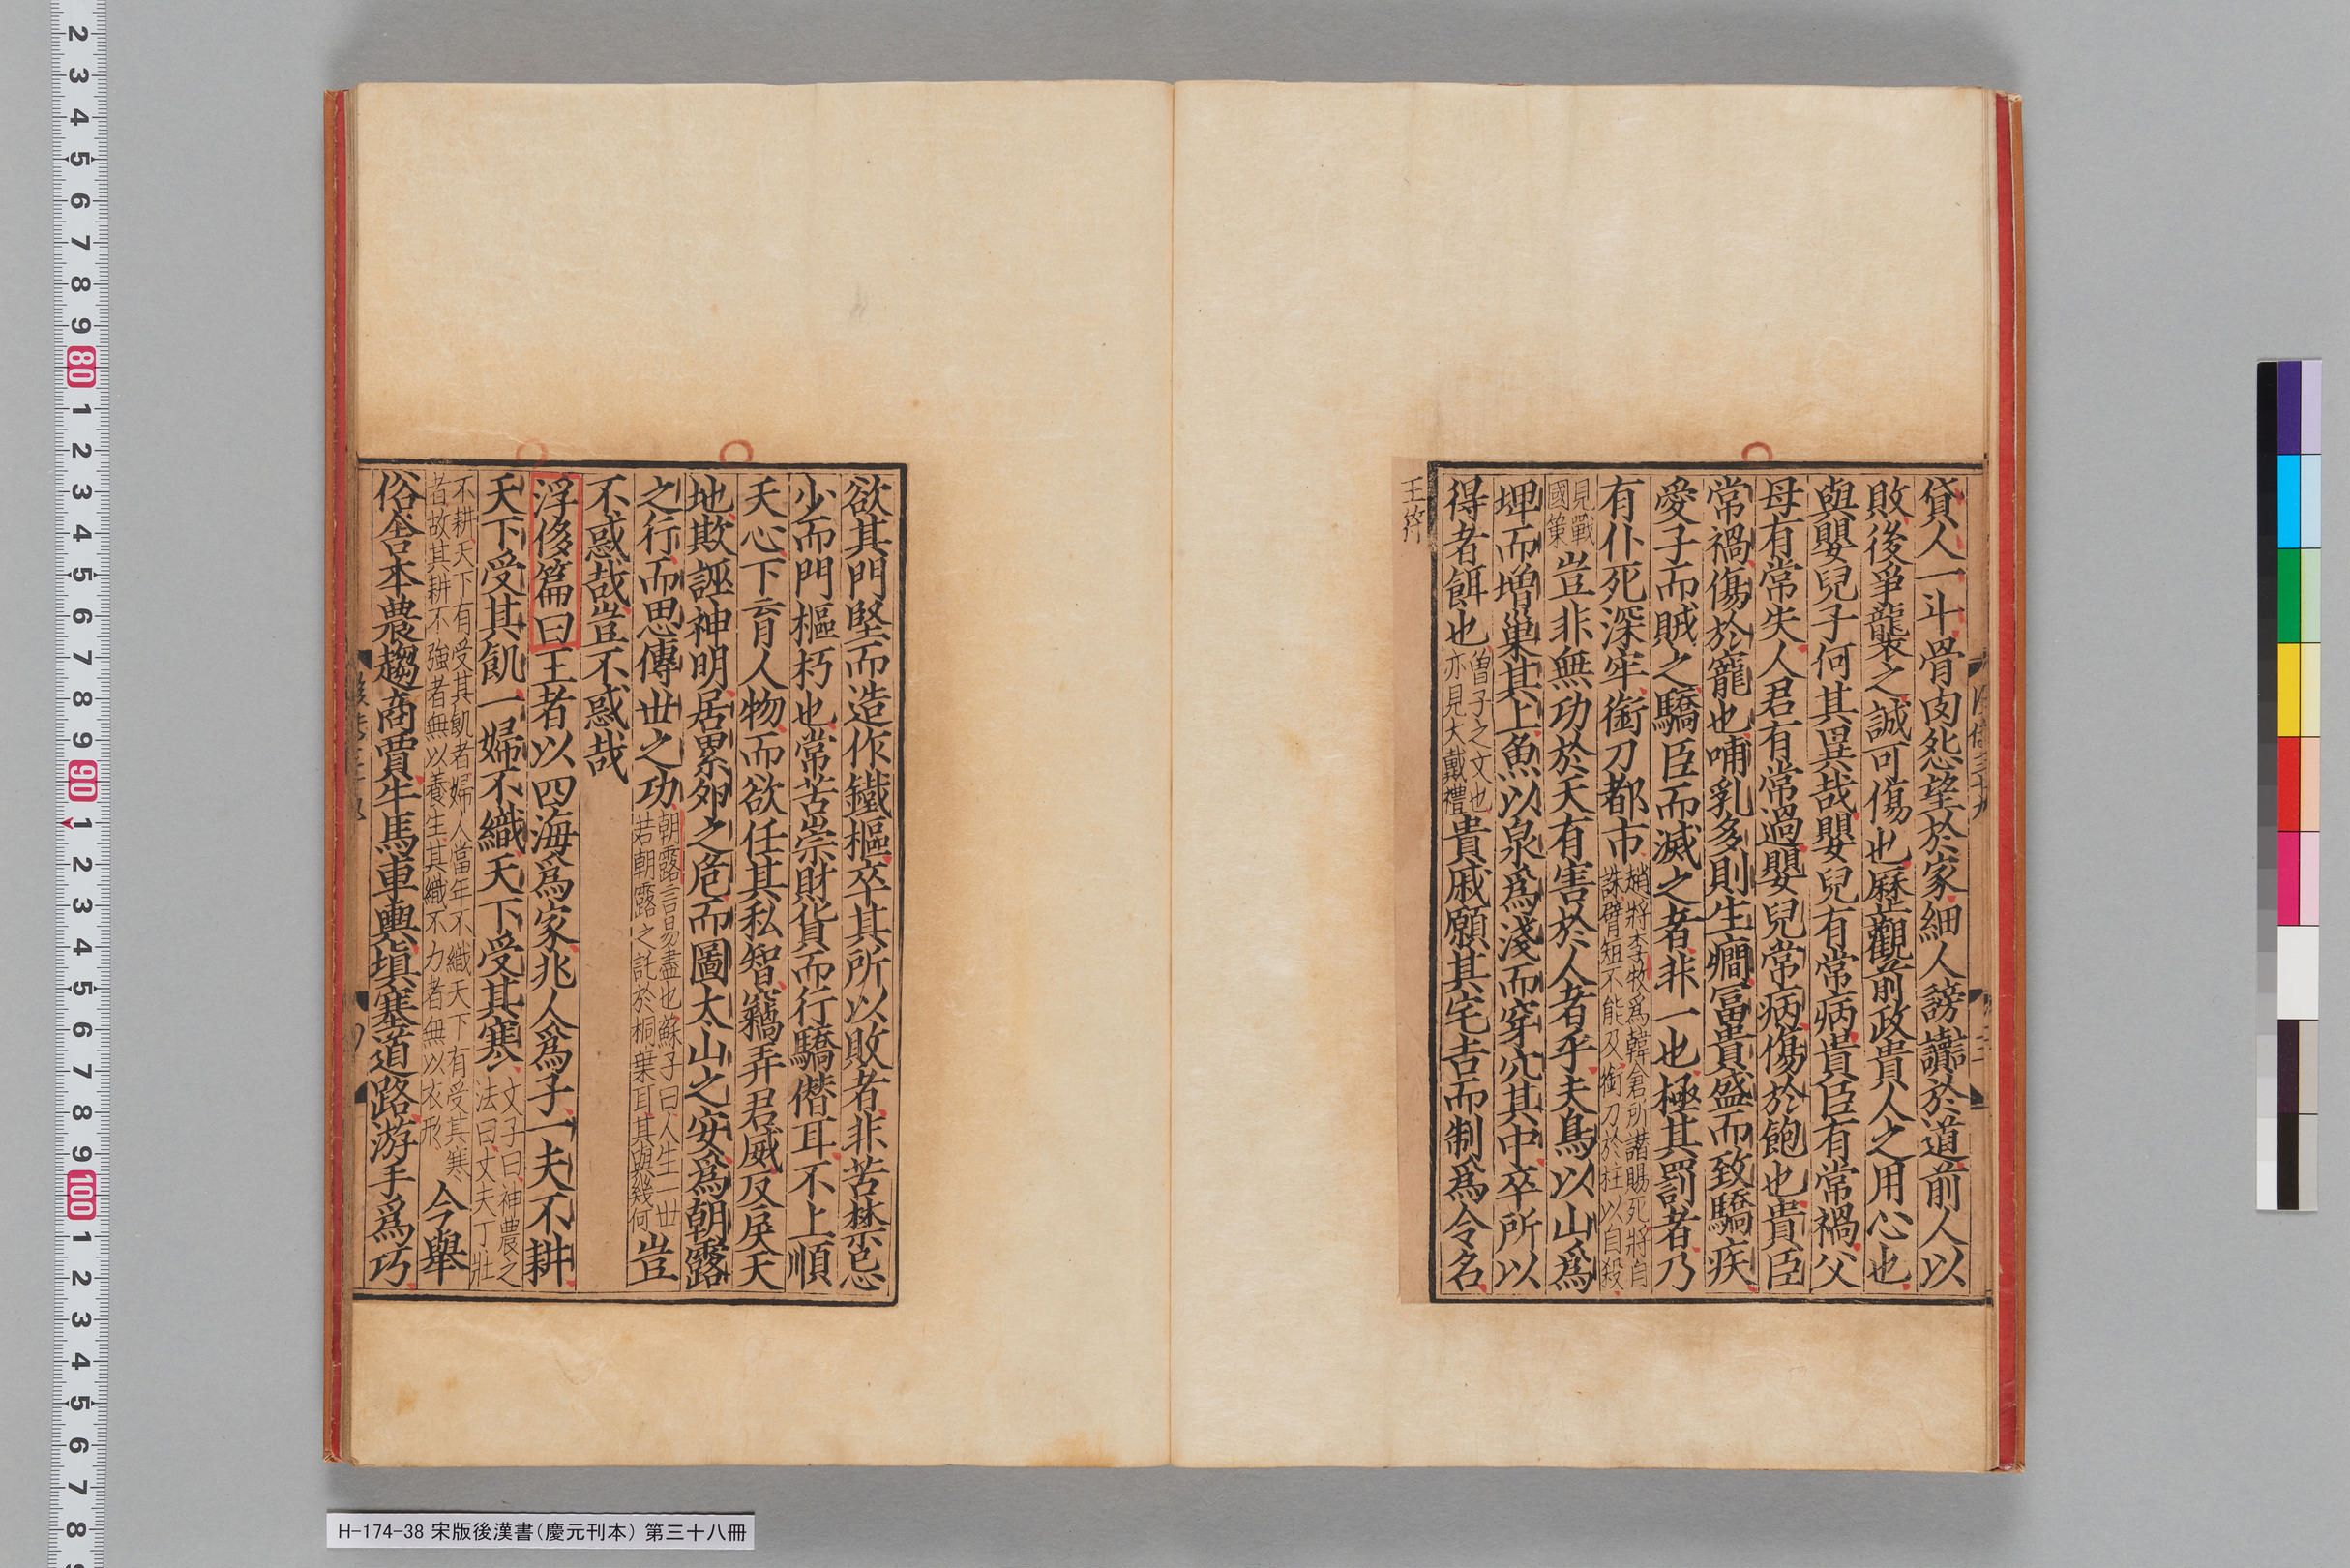 貸人一斗骨肉怨望於家細人謗讟於道前人以
敗後爭襲之誠可傷也歷觀前政貴人之用心也
與嬰兒子何其異哉嬰兒有常病貴臣有常禍父
母有常失人君有常過嬰兒常病傷於飽也貴臣
常禍傷於寵也哺乳多則生癇富貴盛而致驕疾
愛子而賊之驕臣而滅之者非一也極其罰者乃
有仆死深牢銜刀都市
趙將李牧爲韓倉所譖賜死將自
誅臂短不能及銜刀於柱以自殺
見戰
國策
豈非無功於天有害於人者乎夫鳥以山爲
埤而增巢其上魚以泉爲淺而穿穴其中卒所以
得者餌也
曾子之文也
亦見大戴禮
貴戚願其宅吉而制爲令名
王符
欲其門堅而造作鐵樞卒其所以敗者非苦禁忌
少而門樞朽也常苦崇財貨而行驕僭耳不上順
天心下育人物而欲任其私智竊弄君威反戾天
地欺誣神明居累卵之危而圖太山之安爲朝露
之行而思傳世之功
朝露言易盡也蘇子曰人生一世
若朝露之託於桐葉耳其與幾何
豈
不惑哉豈不惑哉
浮侈篇曰王者以四海爲家兆人爲子一夫不耕
天下受其飢一婦不織天下受其寒
文子曰神農之
法曰丈夫丁壯
不耕天下有受其飢者婦人當年不織天下有受其寒
者故其耕不強者無以養生其織不力者無以衣形
今舉
俗舍本農趨商賈牛馬車輿填塞道路游手爲巧
H-174-38 宋版後漢書(慶元刊本) 第三十八冊
2
3
4
5
6
7
8
9
80
1
2
3
4
5
6
7
8
9
90
1
2
3
4
5
6
7
8
9
100
1
2
3
4
5
6
7
8